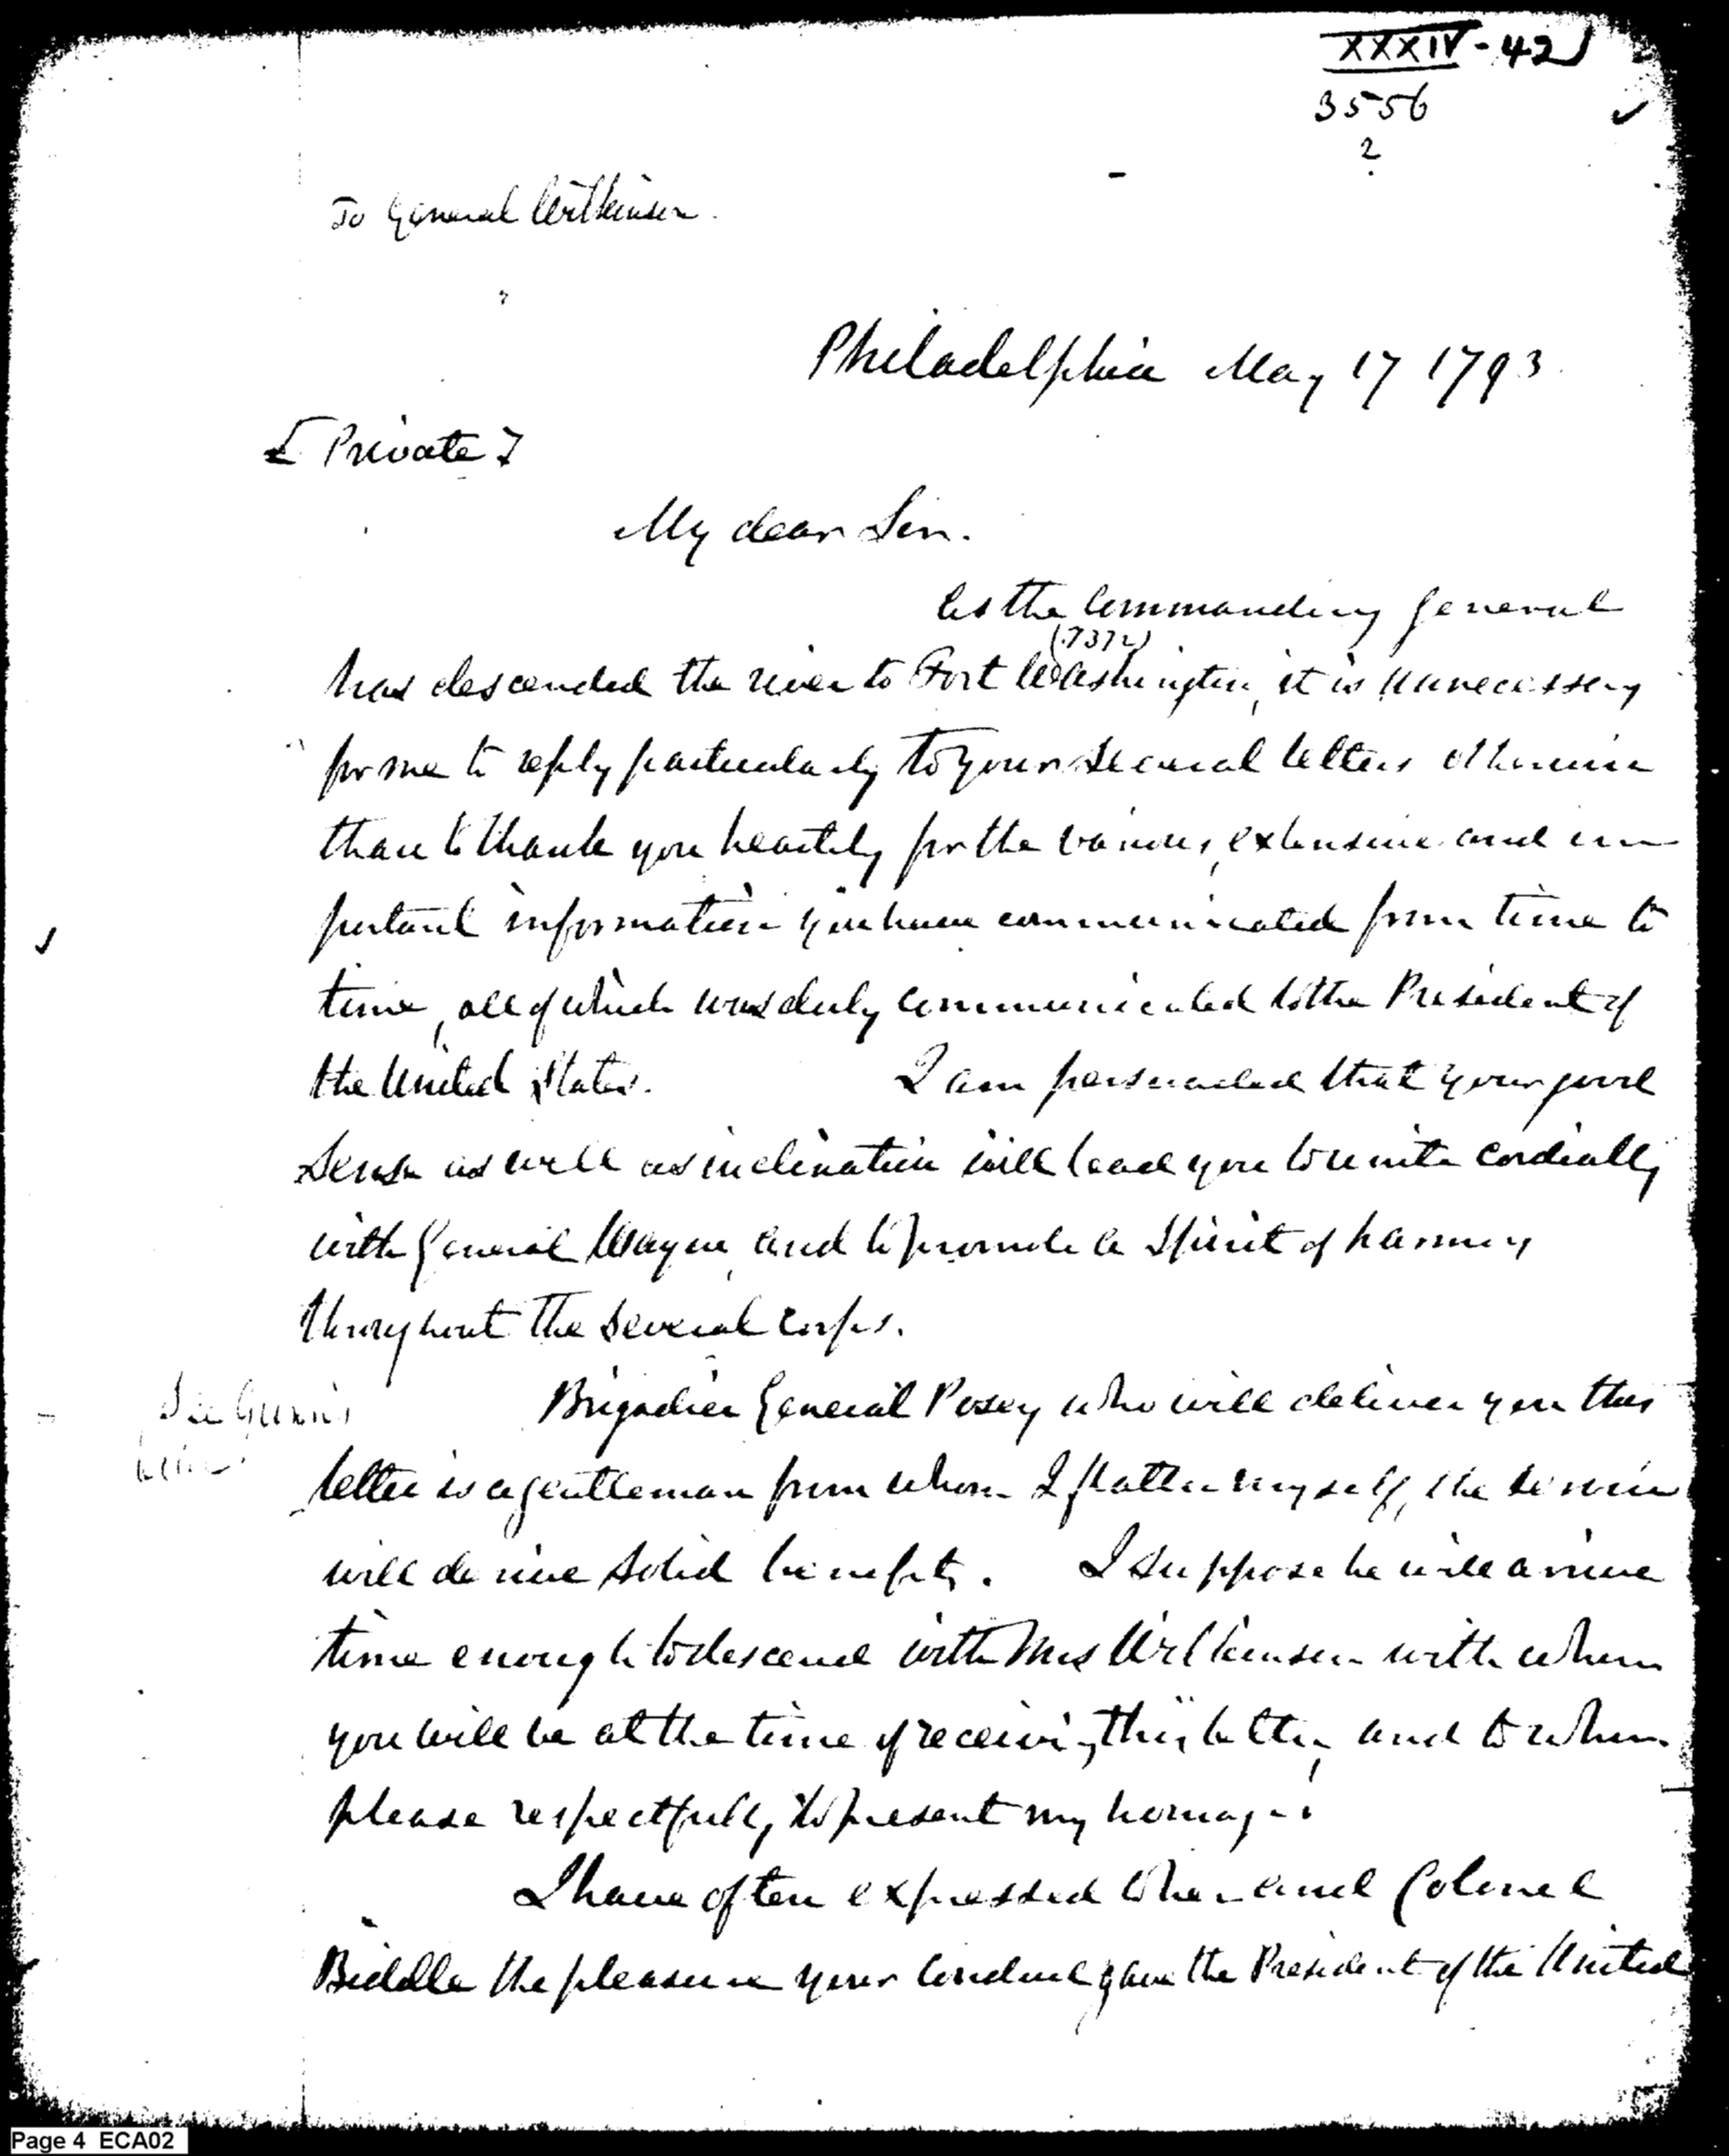 XXXIV-42
3556
2
To General Wilkinson.
Philadelphia May 17 1793.
[Private]
My dear Sir.
As the Commanding General
(.7372)
has descended the river to Fort Washington, it is unnecessary
for me to reply particularly to your several letters otherwise
than to thank you heartily for the various, extensive and im
portant information you have communicated from time to
time, all of which was duly communicated to the President of
the United States. I am persuaded that your good
sense as well as inclination will lead you to unite cordially
with General Wayne, and to promote a Spirit of harmony
throughout the several corps.
See
Brigadier General Posey who will deliver you this
letter is a gentleman from whom I flatter myself, the service
will derive solid benefits. I suppose he will arrive
time enough to descend with Mrs Wilkinson with whom
you will be at the time of receiving this letter, and to whom
please respectfully to present my homage.
I have often expressed to her and Colonel
Biddle the pleasure your conduct gave the President of the United
Page 4 ECA02